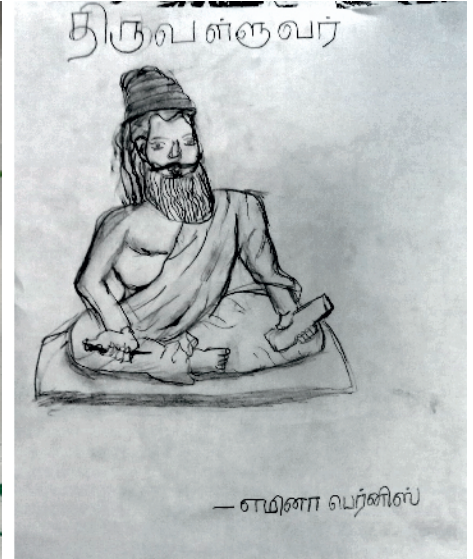 திருவள்ளுவர்
– எமினா பெர்னிஸ்